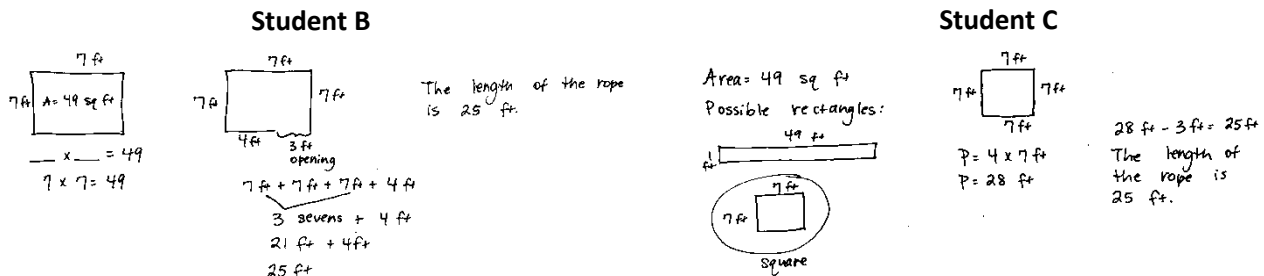 Student B
7 ft
7 ft
A = 49 sq ft
__ x __ = 49
7 x 7 = 49
7 ft
7 ft
7 ft
4 ft
3 ft
opening
7 ft + 7 ft + 7 ft + 4 ft
3 sevens + 4 ft
21 ft + 4 ft
25 ft
The length of the rope
is 25 ft.
Student C
Area = 49 sq ft
Possible rectangles:
49 ft
1
ft
7 ft
7 ft
square
7 ft
7 ft
7 ft
7 ft
P = 4 x 7 ft
P = 28 ft
28 ft - 3 ft = 25 ft
The length of
the rope is
25 ft.